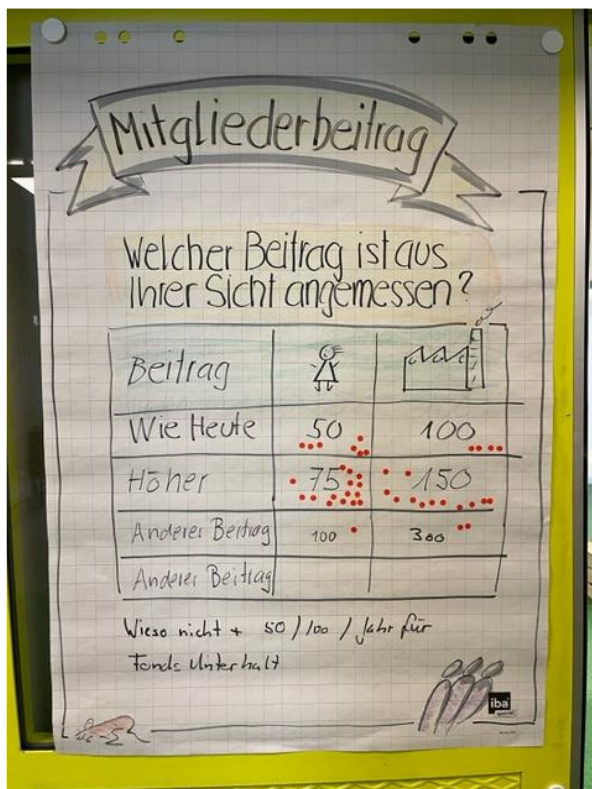 Mitgliederbeitrag
Welcher Beitrag ist aus
Ihrer Sicht angemessen?
Beitrag
Wie Heute 50 100
Höher 75 150
Anderer Beitrag 100 300
Anderer Beitrag
Wieso nicht + 50 / 100 / Jahr für
Fonds Unterhalt
iba